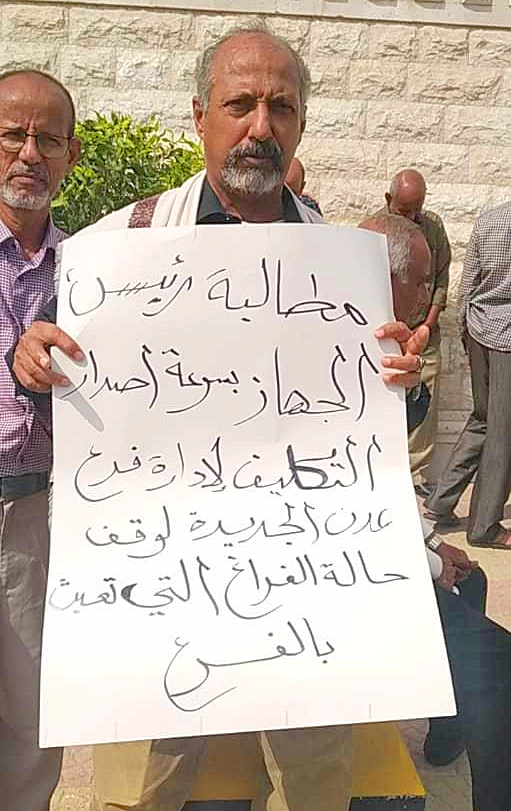 مطالبة رئيس
الجهاز بسرعة اصدار
التكليف لإدارة فرع
عدن الجديدة لوقف
حالة الفراغ التي تعبث
بالفرع